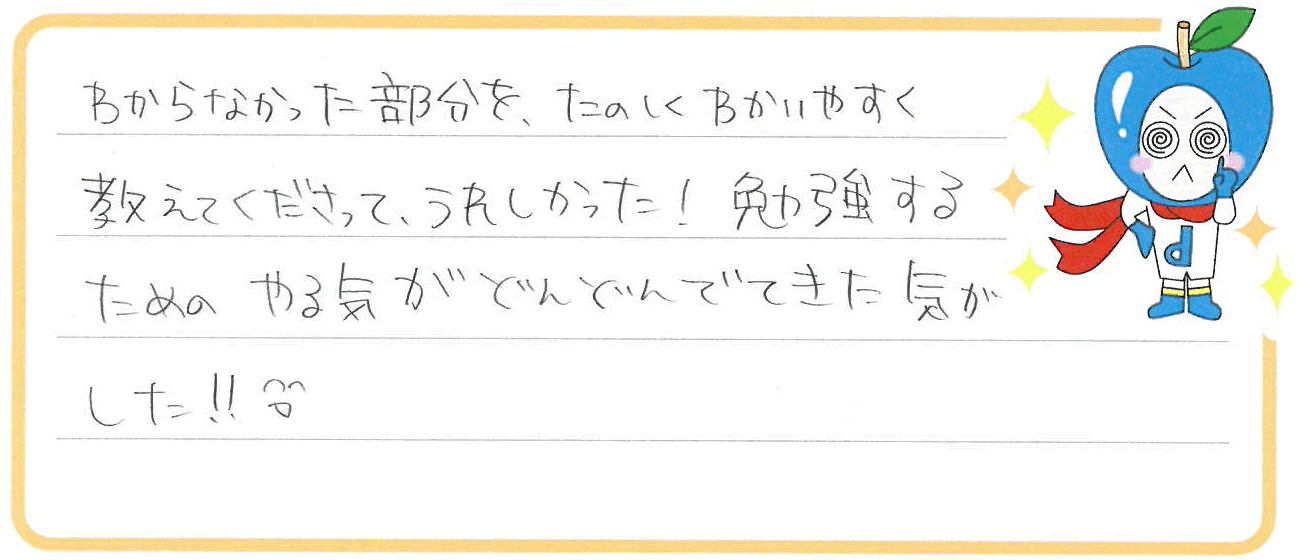 わからなかった部分を、たのしくわかりやすく
教えてくださって、うれしかった！勉強する
ための やる気がどんどんでてきた気が
した!!
P